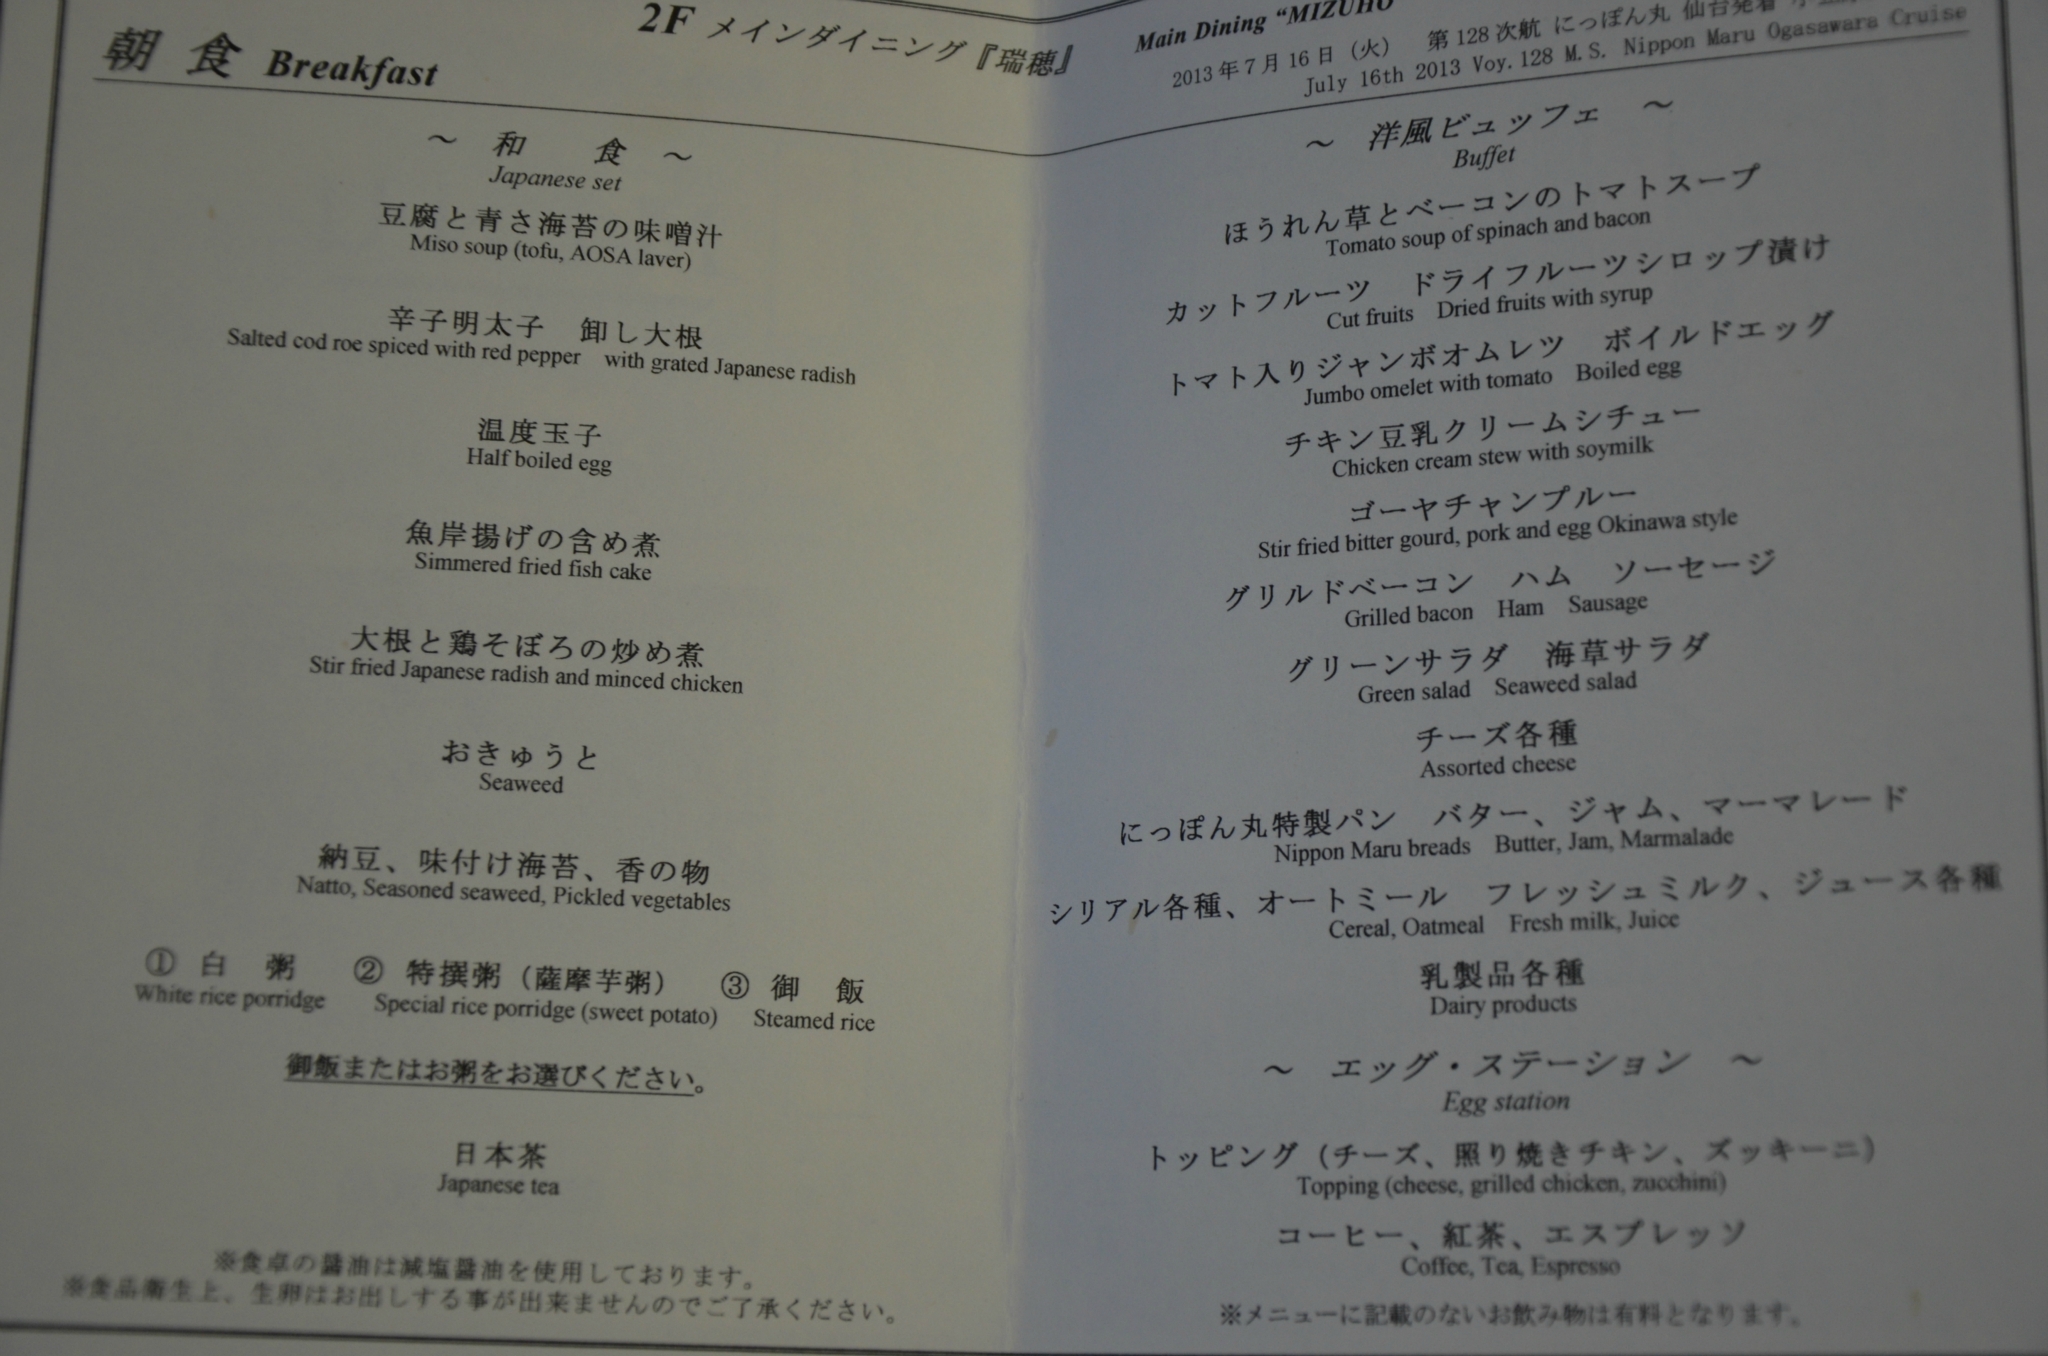 朝 食 Breakfast
2F メインダイニング『瑞穂』
Main Dining “MIZUHO
2013年7月16日（火） 第128次航 にっぽん丸 仙台発着
July 16th 2013 Voy.128 M.S. Nippon Maru Ogasawara Cruise
～ 和 食 ～
Japanese set
豆腐と青さ海苔の味噌汁
Miso soup (tofu, AOSA laver)
辛子明太子 卸し大根
Salted cod roe spiced with red pepper with grated Japanese radish
温度玉子
Half boiled egg
魚岸揚げの含め煮
Simmered fried fish cake
大根と鶏そぼろの炒め煮
Stir fried Japanese radish and minced chicken
おきゅうと
Seaweed
納豆、味付け海苔、香の物
Natto, Seasoned seaweed, Pickled vegetables
① 白 粥 ② 特撰粥（薩摩芋粥） ③ 御 飯
White rice porridge Special rice porridge (sweet potato) Steamed rice
御飯またはお粥をお選びください。
日本茶
Japanese tea
※食卓の醤油は減塩醤油を使用しております。
※食品衛生上、生卵はお出しする事が出来ませんのでご了承ください。
～ 洋風ビュッフェ ～
Buffet
ほうれん草とベーコンのトマトスープ
Tomato soup of spinach and bacon
カットフルーツ ドライフルーツシロップ漬け
Cut fruits Dried fruits with syrup
トマト入りジャンボオムレツ ボイルドエッグ
Jumbo omelet with tomato Boiled egg
チキン豆乳クリームシチュー
Chicken cream stew with soymilk
ゴーヤチャンプルー
Stir fried bitter gourd, pork and egg Okinawa style
グリルドベーコン ハム ソーセージ
Grilled bacon Ham Sausage
グリーンサラダ 海草サラダ
Green salad Seaweed salad
チーズ各種
Assorted cheese
にっぽん丸特製パン バター、ジャム、マーマレード
Nippon Maru breads Butter, Jam, Marmalade
シリアル各種、オートミール フレッシュミルク、ジュース各種
Cereal, Oatmeal Fresh milk, Juice
乳製品各種
Dairy products
～ エッグ・ステーション ～
Egg station
トッピング（チーズ、照り焼きチキン、ズッキーニ）
Topping (cheese, grilled chicken, zucchini)
コーヒー、紅茶、エスプレッソ
Coffee, Tea, Espresso
※メニューに記載のないお飲み物は有料となります。